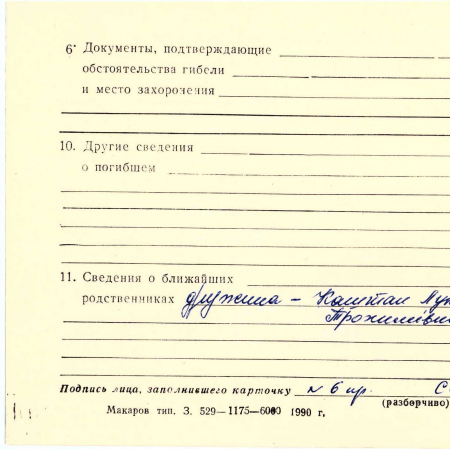 6· Документы, подтверждающие
обстоятельства гибели
и место захоронения
10. Другие сведения
о погибшем
11. Сведения о ближайших
родственниках дружина – Каштан
Трохимівн
Подпись лица, заполнившего карточку
(разборчиво)
Макаров тип. З. 529—1175—6000 1990 г.